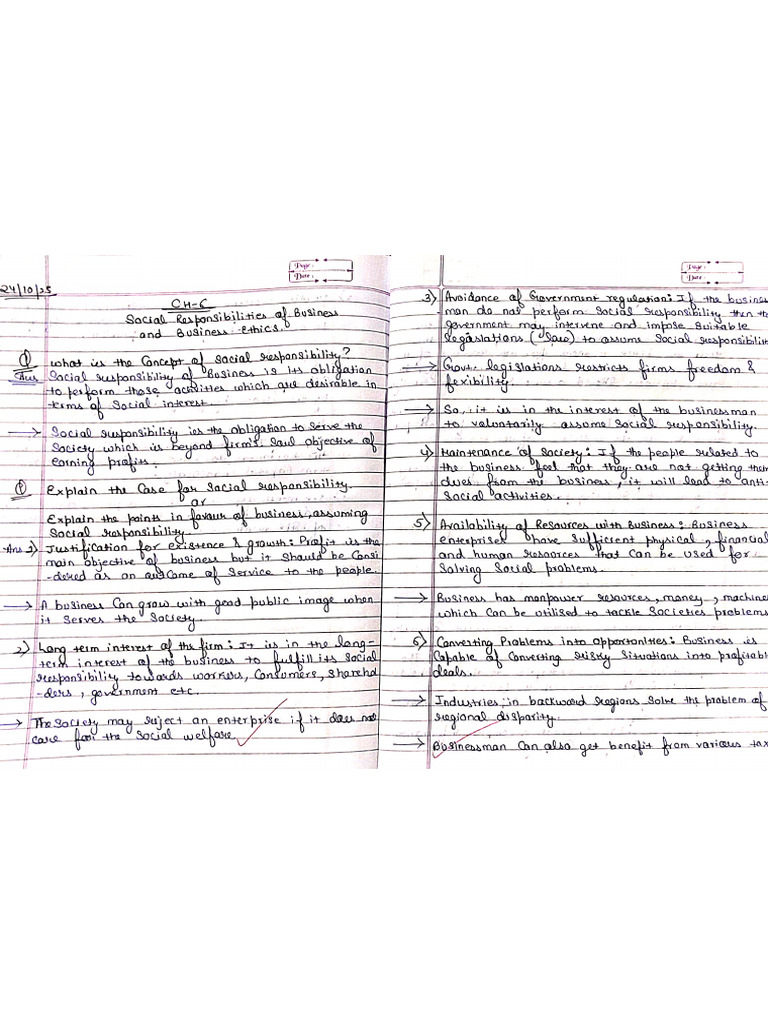 24/10/25
Page:
Date:
CH-6
Social Responsibilities of Business
and Business Ethics.
① what is the Concept of Social responsibility?
Ans Social responsibility of Business is its obligation
to perform those activities which are desirable in
terms of Social interest
→ Social responsibility is the obligation to serve the
Society which is beyond firm's Saul objective of
earning profits.
① Explain the Case for Social responsibility.
or
Explain the points in favour of business, assuming
Social responsibility.
Ans 1) Justification for existence & growth: Profit is the
main objective of business but it should be Consi
-dered as an outcome of Service to the people.
→ A business Can grow with good public image when
it serves the Society.
2) Long term interest of the firm: It is in the long-
term interest of the business to fulfill its Social
responsibility towards workers, Consumers, Sharehol
-ders, government etc.
→ The Society may reject an enterprise if it does not
care for the Social welfare
Page:
Date:
3) Avoidance of Government regulation: If the busines
man do not perform Social responsibility then the
government may intervene and impose Suitable
legislations (law) to assume Social responsibilit
→ Govt. legislations restricts firms freedom &
flexibility.
→ So, it is in the interest of the businessman
to voluntarily assume Social responsibility.
4) Maintenance of Society: If the people related to
the business feel that they are not getting their
dues from the business, it will lead to anti-
Social activities.
5) Availability of Resources with Business: Business
enterprises have Sufficient physical, financial
and human resources that can be used for
Solving Social problems.
→ Business has manpower resources, money, machine
which Can be utilised to tackle Societies problems
6) Converting Problems into Opportonities: Business is
Capable of Converting risky Situations into profitabl
deals.
→ Industries in backward regions Solve the problem of
regional disparity.
→ Businessman Can also get benefit from various tax